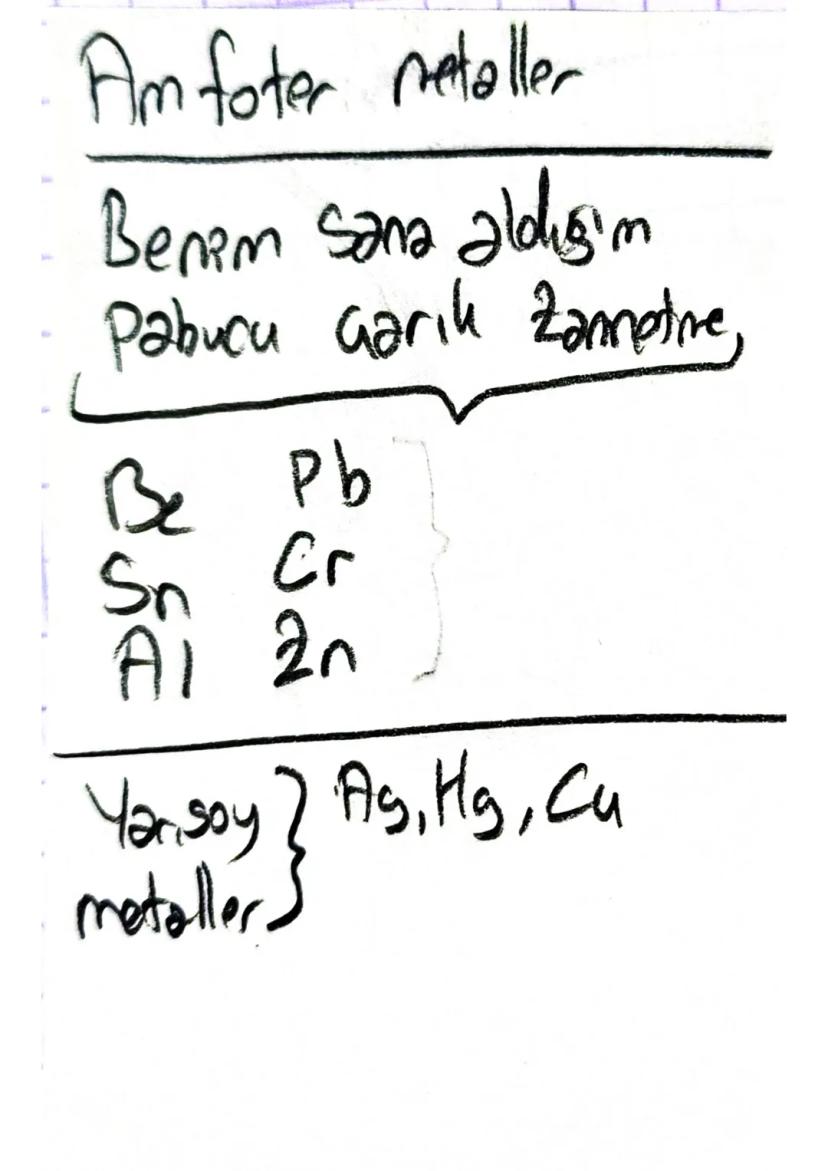 Amfoter metaller
Benim sana aldığım
Pabucu çarık zannetme,
Be Pb
Sn Cr
Al Zn
Yarısoy } Ag, Hg, Cu
metaller